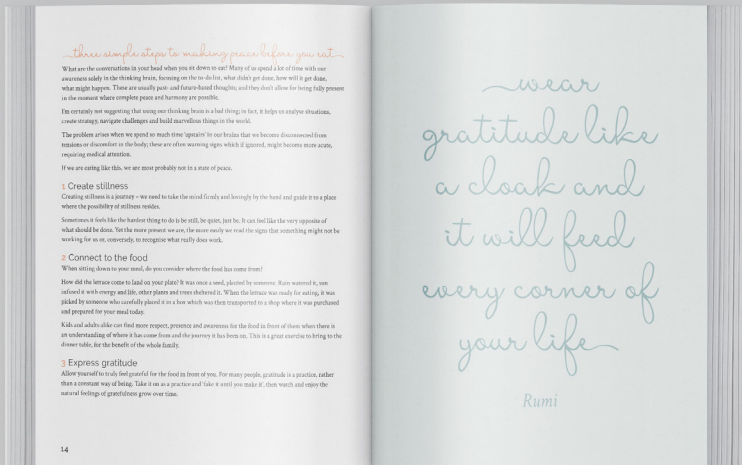 three simple steps to making peace before you eat
What are the conversations in your head when you sit down to eat? Many of us spend a lot of time with our
awareness solely in the thinking brain, focusing on the to-do list, what didn't get done, how will it get done,
what might happen. These are usually past- and future-based thoughts; and they don't allow for being fully present
in the moment where complete peace and harmony are possible.
I'm certainly not suggesting that using our thinking brain is a bad thing; in fact, it helps us analyse situations,
create strategy, navigate challenges and build marvellous things in the world.
The problem arises when we spend so much time 'upstairs' in our brains that we become disconnected from
tensions or discomfort in the body; these are often warning signs which if ignored, might become more acute,
requiring medical attention.
If we are eating like this, we are most probably not in a state of peace.
1 Create stillness
Creating stillness is a journey – we need to take the mind firmly and lovingly by the hand and guide it to a place
where the possibility of stillness resides.
Sometimes it feels like the hardest thing to do is be still, be quiet, just be. It can feel like the very opposite of
what should be done. Yet the more present we are, the more easily we read the signs that something might not be
working for us or, conversely, to recognise what really does work.
2 Connect to the food
When sitting down to your meal, do you consider where the food has come from?
How did the lettuce come to land on your plate? It was once a seed, planted by someone. Rain watered it, sun
infused it with energy and life, other plants and trees sheltered it. When the lettuce was ready for eating, it was
picked by someone who carefully placed it in a box which was then transported to a shop where it was purchased
and prepared for your meal today.
Kids and adults alike can find more respect, presence and awareness for the food in front of them when there is
an understanding of where it has come from and the journey it has been on. This is a great exercise to bring to the
dinner table, for the benefit of the whole family.
3 Express gratitude
Allow yourself to truly feel grateful for the food in front of you. For many people, gratitude is a practice, rather
than a constant way of being. Take it on as a practice and 'fake it until you make it', then watch and enjoy the
natural feelings of gratefulness grow over time.
14
wear
gratitude like
a cloak and
it will feed
every corner of
your life
Rumi